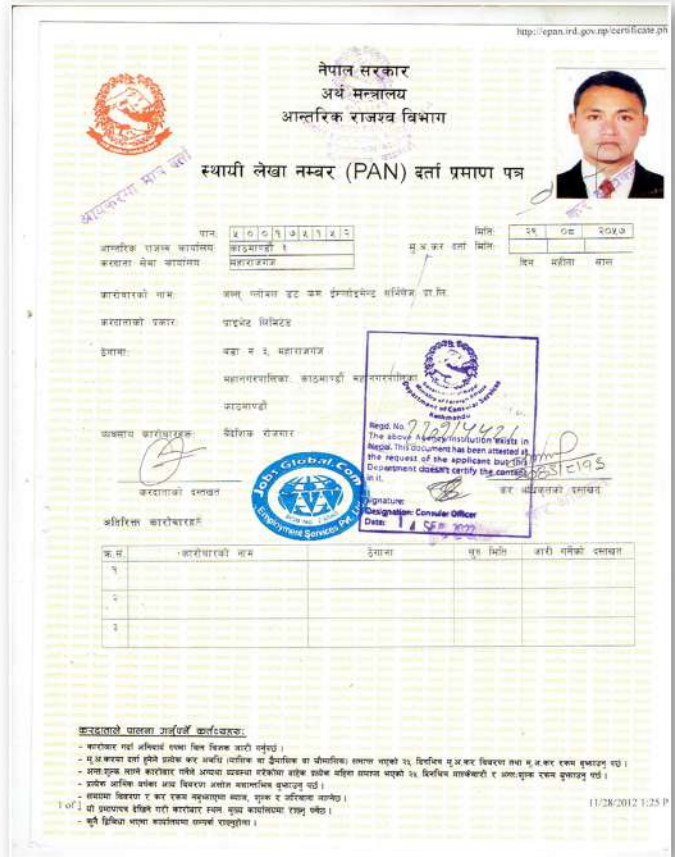 http://epan.ird.gov.np/certificate.ph
नेपाल सरकार
अर्थ मन्त्रालय
आन्तरिक राजश्व विभाग
स्थायी लेखा नम्बर (PAN) दर्ता प्रमाण पत्र
आयकरमा मात्र दर्ता
पान: ५ ० ० १ ७ ५ १ ५ २
मिति: २९ ०८ २०५७
आन्तरिक राजस्व कार्यालय: काठमाण्डौ १
मु.अ.कर दर्ता मिति:
करदाता सेवा कार्यालय: महाराजगंज
दिन महीना साल
कारोबारको नाम: जब्स् ग्लोबल डट कम ईम्प्लाइमेन्ट सर्भिसेज प्रा.लि.
करदाताको प्रकार: प्राइभेट लिमिटेड
ठेगाना: वडा नं ३, महाराजगंज
महानगरपालिका: काठमाण्डौ महानगरपालिका
काठमाण्डौ
व्यवसाय कारोबारहरु: बैदेशिक रोजगार
Government of Nepal
Ministry of Foreign Affairs
Department of Consular Services
Kathmandu
Regd. No.
The above Agency/Institution exists in
Nepal. This document has been attested at
the request of the applicant but this
Department doesn't certify the content
in it.
Signature:
Designation: Consular Officer
Date: 14 SEP 2022
Jobs Global.Com
Employment Services Pvt. Ltd.
करदाताको दस्तखत
कर अधिकृतको दस्तखत
अतिरिक्त कारोबारहरु
क्र.सं. कारोबारको नाम ठेगाना सुरु मिति जारी गर्नेको दस्तखत
१
२
३
करदाताले पालना गर्नुपर्ने कर्तव्यहरु:
- कारोबार गर्दा अनिवार्य रुपमा बिल बिजक जारी गर्नुपर्छ ।
- मु.अ.करमा दर्ता हुनेले प्रत्येक कर अवधि (मासिक वा द्वैमासिक वा चौमासिक) समाप्त भएको २५ दिनभित्र मु.अ.कर विवरण तथा मु.अ.कर रकम बुझाउनु पर्छ ।
- अन्तःशुल्क लाग्ने कारोबार गर्नेले अन्यथा व्यवस्था गरेकोमा बाहेक प्रत्येक महिना समाप्त भएको २५ दिनभित्र मास्केवारी र अन्तःशुल्क रकम बुझाउनु पर्छ ।
- प्रत्येक आर्थिक वर्षका आय विवरण असोज मसान्तभित्र बुझाउनु पर्छ ।
- समयमा विवरण र कर रकम नबुझाएमा ब्याज, शुल्क र जरिवाना लाग्नेछ ।
- यो प्रमाणपत्र देखिने गरी कारोबार स्थल मुख्य कार्यालयमा राख्नु पर्नेछ ।
- कुनै द्विविधा भएमा कार्यालयमा सम्पर्क राख्नुहोला ।
1 of 1
11/28/2012 1:25 P